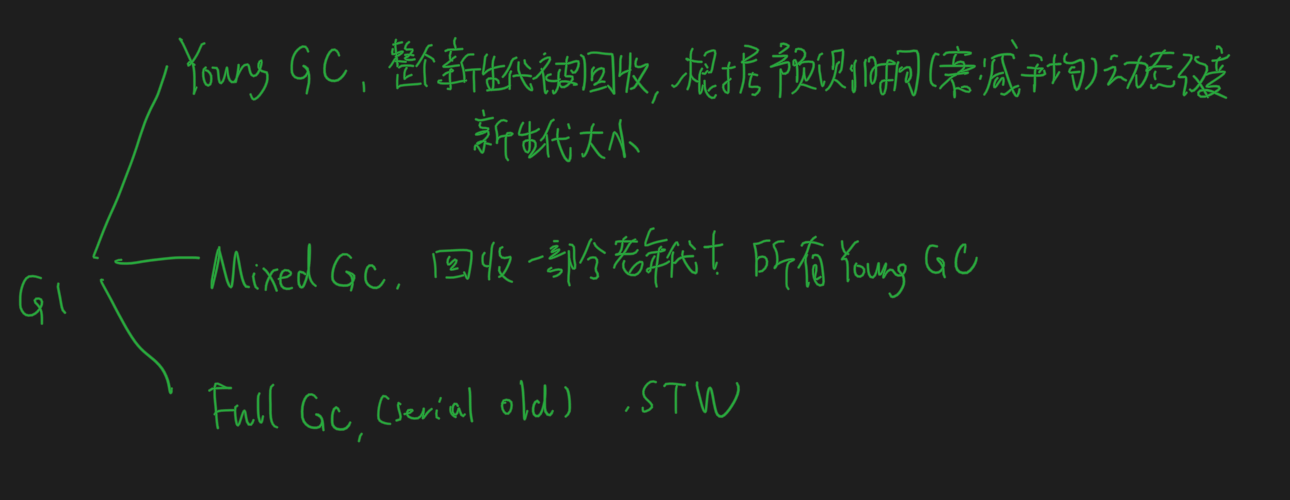 Young GC, 整个新生代被回收, 根据预测时间(衰减平均)动态改变
新生代大小
Mixed GC, 回收一部分老年代+ 所有Young GC
G1
Full GC,(serial old) .STW